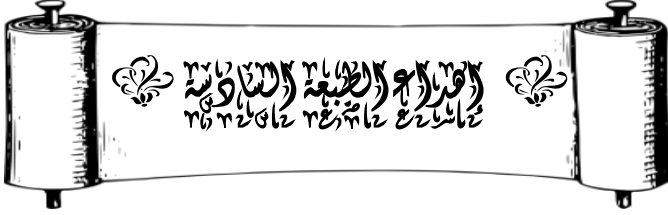 إهداء الطبعة السادسة